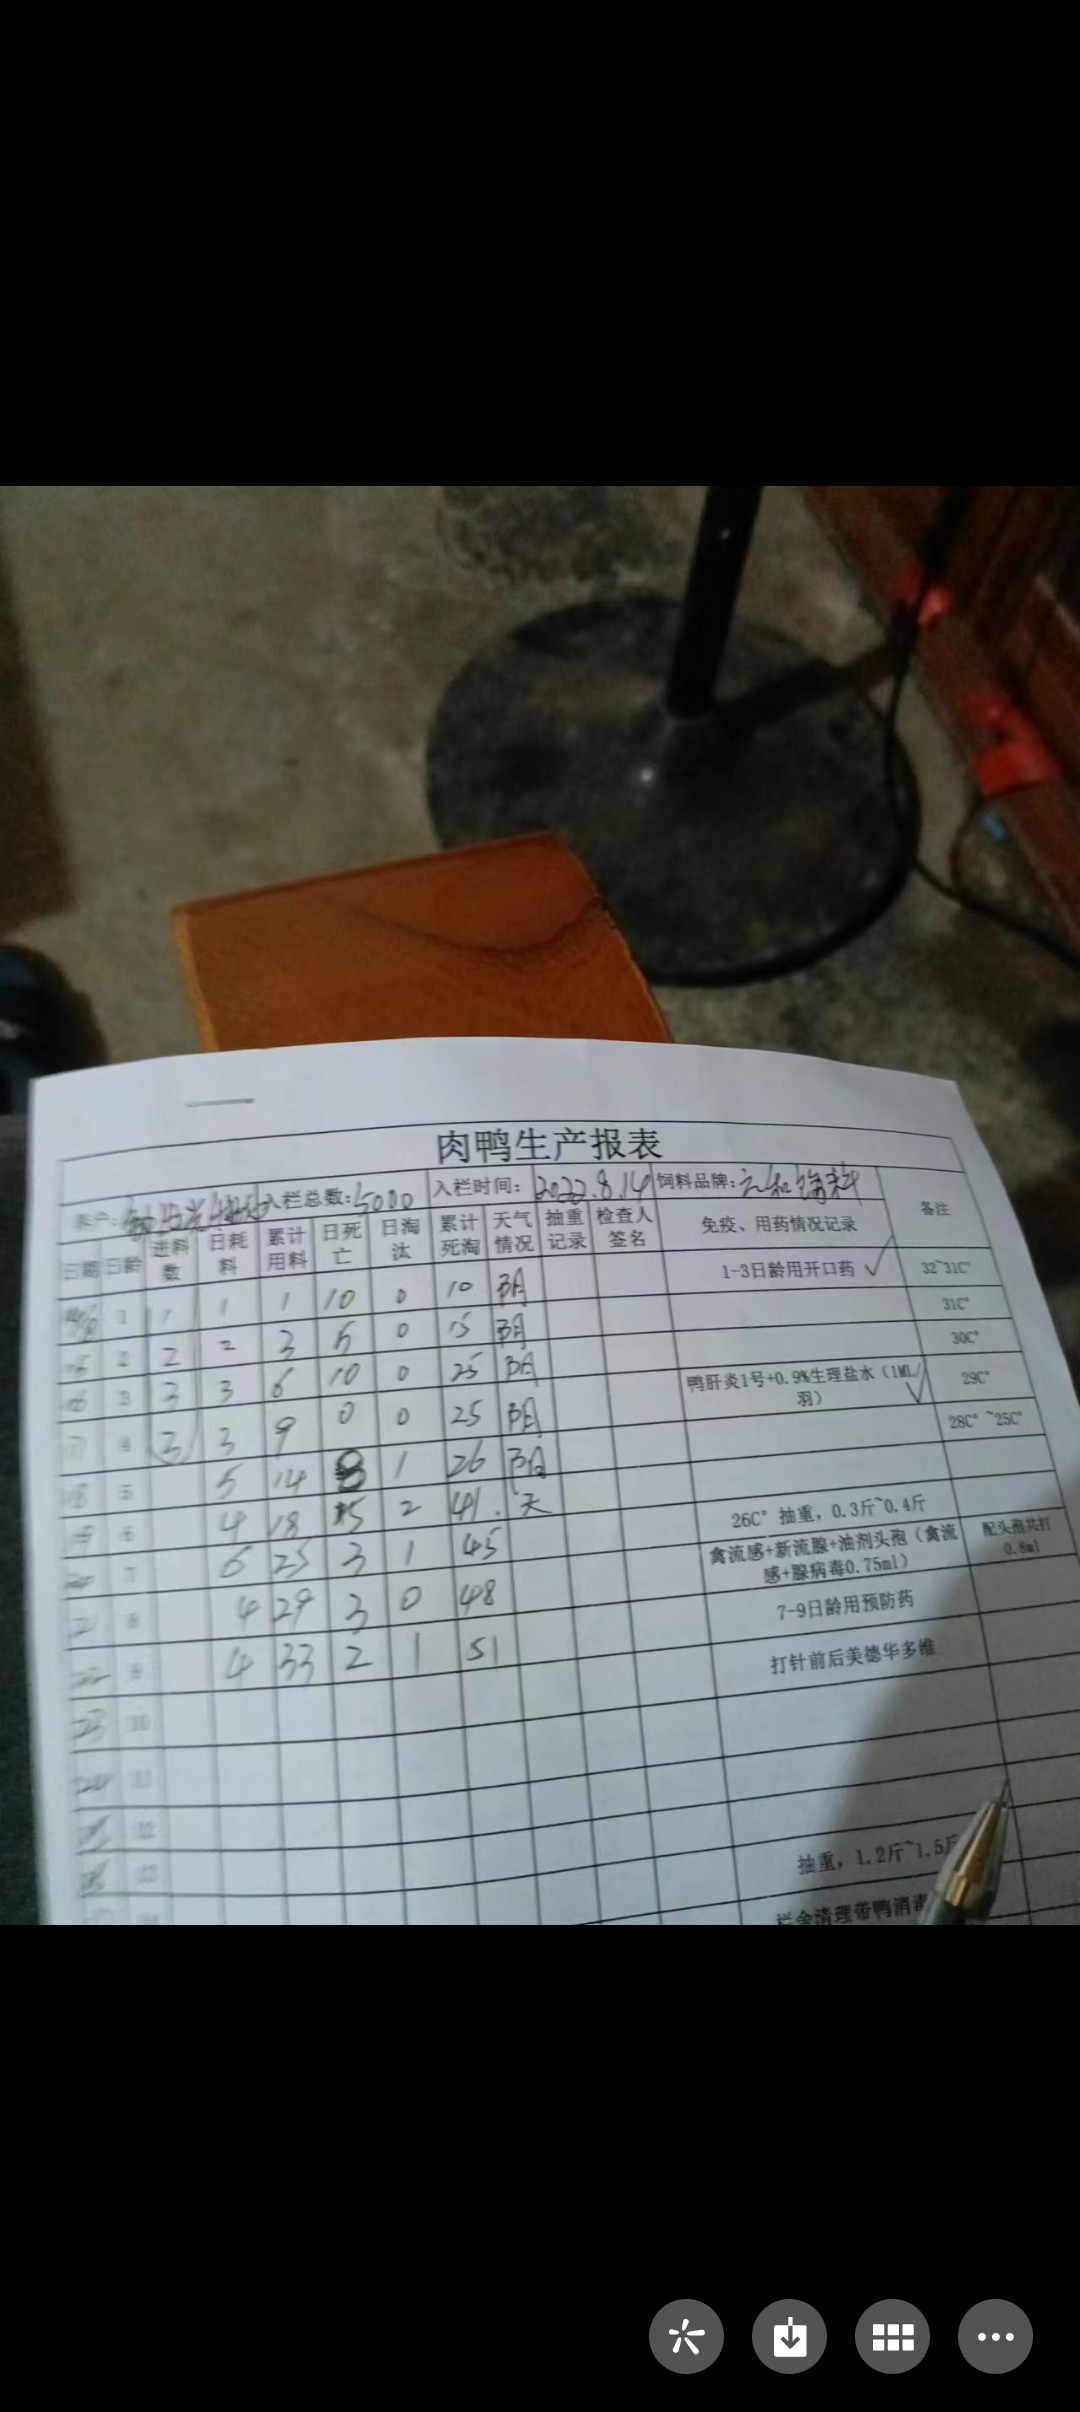 肉鸭生产报表
养户: 入栏总数:5000 入栏时间:2022.8.14 饲料品牌: 备注
日期 日龄 进料数 日耗料 累计用料 日死亡 日淘汰 累计死淘 天气情况 抽重记录 检查人签名 免疫、用药情况记录
1 1 1 1 10 0 10 阴 1-3日龄用开口药 ✓ 32~31C°
2 2 2 3 5 0 15 阴 31C°
16 3 3 3 6 10 0 25 阴 30C°
17 4 3 3 9 0 0 25 阴 鸭肝炎1号+0.9%生理盐水（1ML/羽） ✓ 29C°
18 5 5 14 1 26 阴 28C°~25C°
19 6 4 18 15 2 41. 天
20 7 6 25 3 1 45 26C°抽重，0.3斤~0.4斤
21 8 4 29 3 0 48 禽流感+新流腺+油剂头孢（禽流感+腺病毒0.75ml） 配头孢共打0.8ml
22 9 4 33 2 1 51 7-9日龄用预防药
23 10 打针前后美德华多维
24 11
12
13 抽重，1.2斤~1.5斤
栏舍清理带鸭消毒